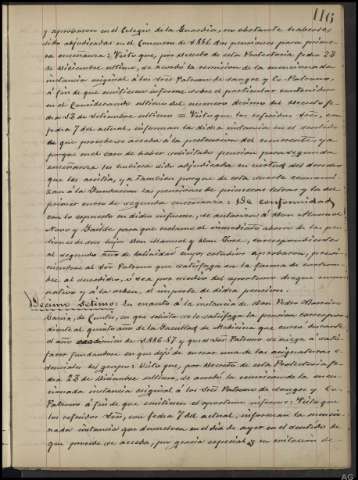 116
y aprobaron en el Colegio de la Guardia, no obstante haberseles
sido adjudicadas en el Concurso de 1886 dos pensiones para primera
enseñanza: Visto que, por decreto de esta Protectoria fecha 23
de diciembre último, se acordó la remisión de la mencionada
instancia original á los Sres Patronos de sangre y Co-Patrono,
á fin de que emitieran informe sobre el particular contenido
en el Considerando último del número décimo del decreto fe-
cha 13 de Setiembre último = Visto que los referidos Sres, con
fecha 7 del actual, informan la dicha instancia en el sentido
de que procede se acceda á la pretensión del recurrente, ya
porque en el caso de haber solicitado pensión para segunda
enseñanza se hubiera sido adjudicada en virtud del derecho
que les asistía, y ya también porque de esta suerte economi-
zan á la Fundación las pensiones de primeras letras y la del
primer curso de segunda enseñanza: De conformidad
con lo expuesto en dicho informe, se autoriza á Don Manuel
Nono y para que reclame el vencimiento ahora de las pen-
siones de sus hijos Don Manuel y Don José, correspondientes
al segundo año de latinidad cuyos estudios aprobaron, y reco-
miéndase al Sor Patrono que satisfaga en la forma de costum-
bre al susodicho, ó sea por medio del oportuno cheque nomi-
nativo y á la orden, el importe de dicha pensión.
Décimo Sétimo: En cuanto á la instancia de Don Pedro Moreira
García, de Cuntis, en que solicita se le satisfaga la pensión correspon-
diente al quinto año de la Facultad de Medicina que cursó durante
el año de 1886-87 y que el Sor Patrono se niega á satis-
facer fundándose en que dejó de cursar una de las asignaturas
del grupo: Visto que, por decreto de esta Protectoria fe-
cha 23 de Diciembre último, se acordó la remisión de la men-
cionada instancia original á los Sres Patronos de sangre y Co-
Patrono á fin de que emitiesen el oportuno informe: Visto que
los referidos Sres, con fecha 7 del actual, informan la mencio-
nada instancia que devuelven en el día de ayer en el sentido de
que procede se acceda, por gracia especial y en evitación de
AG